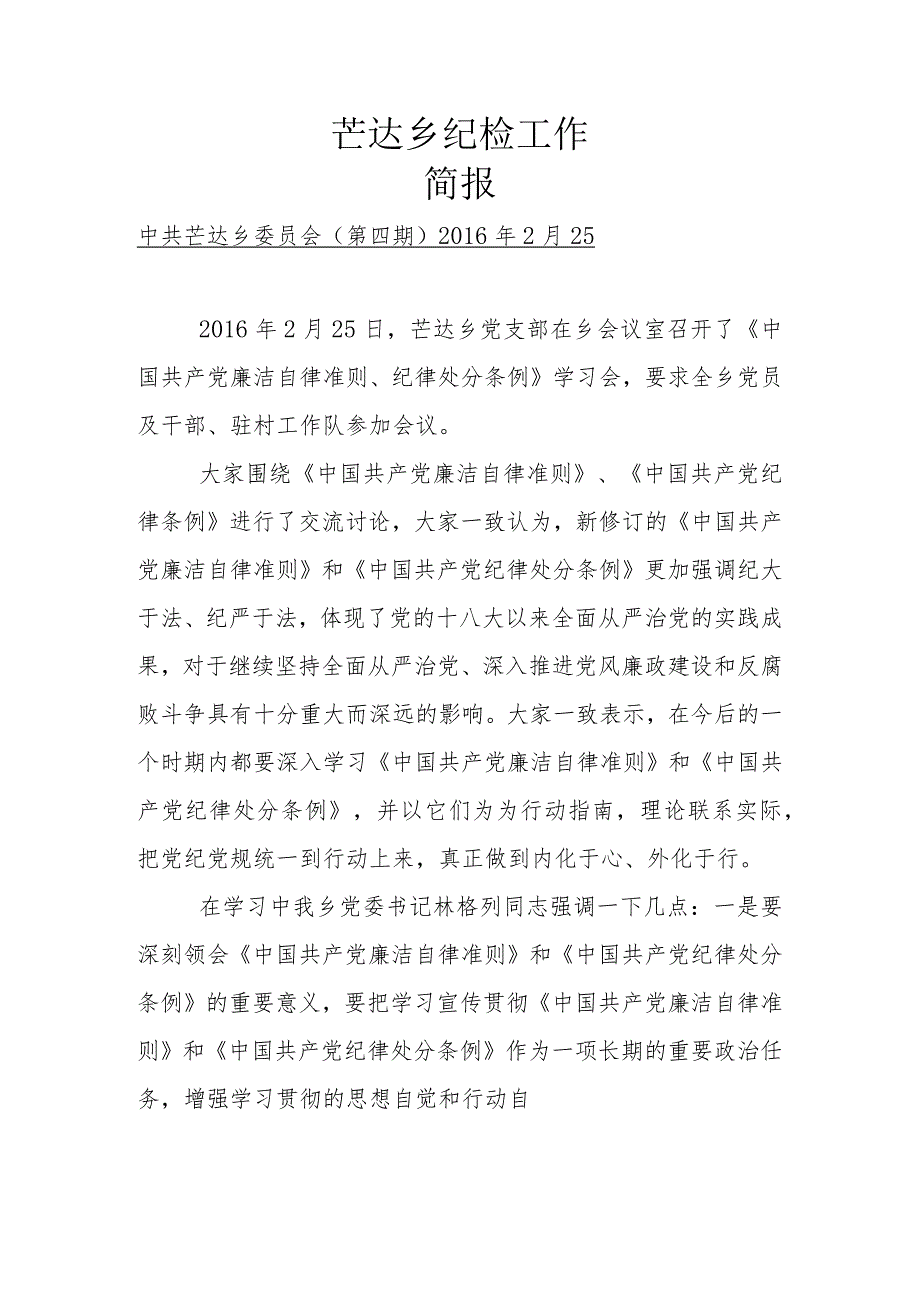 芒达乡纪检工作
简报
中共芒达乡委员会（第四期）2016 年 2 月 25
2016 年 2 月 25 日，芒达乡党支部在乡会议室召开了《中
国共产党廉洁自律准则、纪律处分条例》学习会，要求全乡党员
及干部、驻村工作队参加会议。
大家围绕《中国共产党廉洁自律准则》、《中国共产党纪
律条例》进行了交流讨论，大家一致认为，新修订的《中国共产
党廉洁自律准则》和《中国共产党纪律处分条例》更加强调纪大
于法、纪严于法，体现了党的十八大以来全面从严治党的实践成
果，对于继续坚持全面从严治党、深入推进党风廉政建设和反腐
败斗争具有十分重大而深远的影响。大家一致表示，在今后的一
个时期内都要深入学习《中国共产党廉洁自律准则》和《中国共
产党纪律处分条例》，并以它们为为行动指南，理论联系实际，
把党纪党规统一到行动上来，真正做到内化于心、外化于行。
在学习中我乡党委书记林格列同志强调一下几点：一是要
深刻领会《中国共产党廉洁自律准则》和《中国共产党纪律处分
条例》的重要意义，要把学习宣传贯彻《中国共产党廉洁自律准
则》和《中国共产党纪律处分条例》作为一项长期的重要政治任
务，增强学习贯彻的思想自觉和行动自